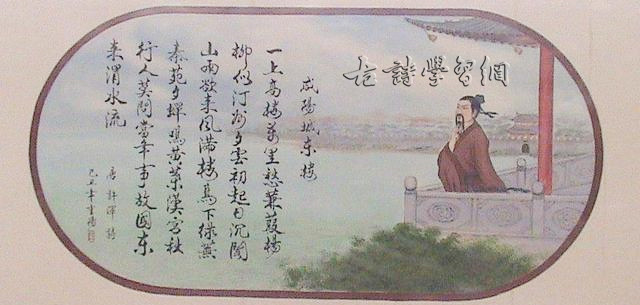 古詩學習網
咸陽城東樓
一上高樓萬里愁蒹葭楊
柳似汀洲夕雲初起日沉閣
山雨欲來風滿樓鳥下綠蕪
秦苑夕蟬鳴黃葉漢宮秋
行人莫問當年事故國東
來渭水流
唐許渾詩
己丑年書